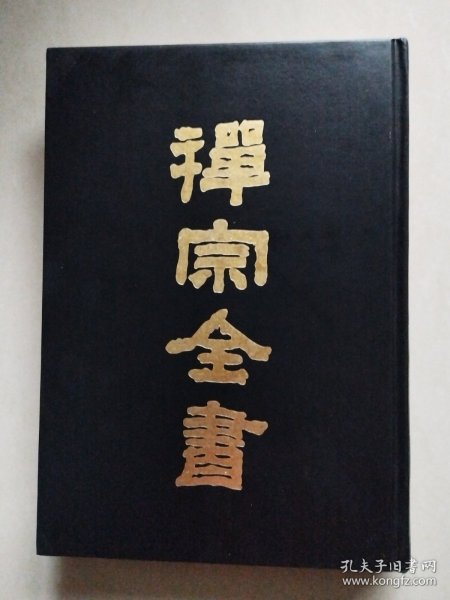 禪宗全書
孔夫子旧书网
www.kongfz.com